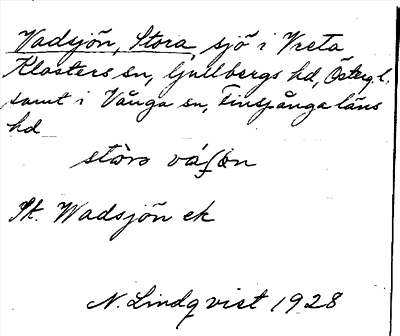 Vadsjön, Stora, sjö i Vreta
Klosters sn, Gullbergs hd, Östergl.
samt i Vånga sn, Finspånga läns
hd
St. Wadsjön ek
N. Lindqvist 1928